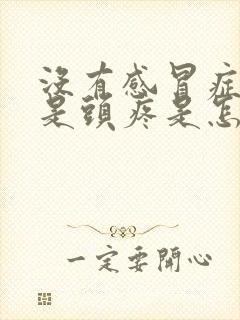 没有感冒症
是頭疼是怎
一定要開心